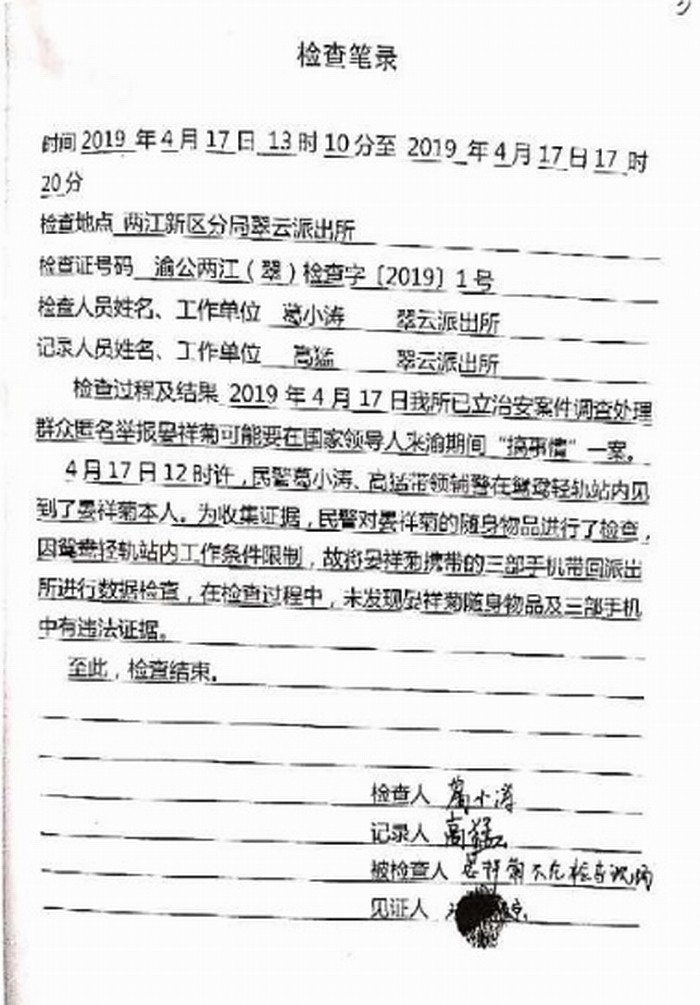 检查笔录
时间 2019 年 4 月 17 日 13 时 10 分至 2019 年 4 月 17 日 17 时
20 分
检查地点 两江新区分局翠云派出所
检查证号码 渝公两江（翠）检查字〔2019〕1 号
检查人员姓名、工作单位 葛小涛 翠云派出所
记录人员姓名、工作单位 高猛 翠云派出所
检查过程及结果 2019 年 4 月 17 日我所已立治安案件调查处理
群众匿名举报晏祥菊可能要在国家领导人来渝期间“搞事情”一案。
4 月 17 日 12 时许，民警葛小涛、高猛带领辅警在鸳鸯轻轨站内见
到了晏祥菊本人。为收集证据，民警对晏祥菊的随身物品进行了检查，
因鸳鸯轻轨站内工作条件限制，故将晏祥菊携带的三部手机带回派出
所进行数据检查，在检查过程中，未发现晏祥菊随身物品及三部手机
中有违法证据。
至此，检查结束。
检查人 葛小涛
记录人 高猛
被检查人 晏祥菊不在检查现场
见证人